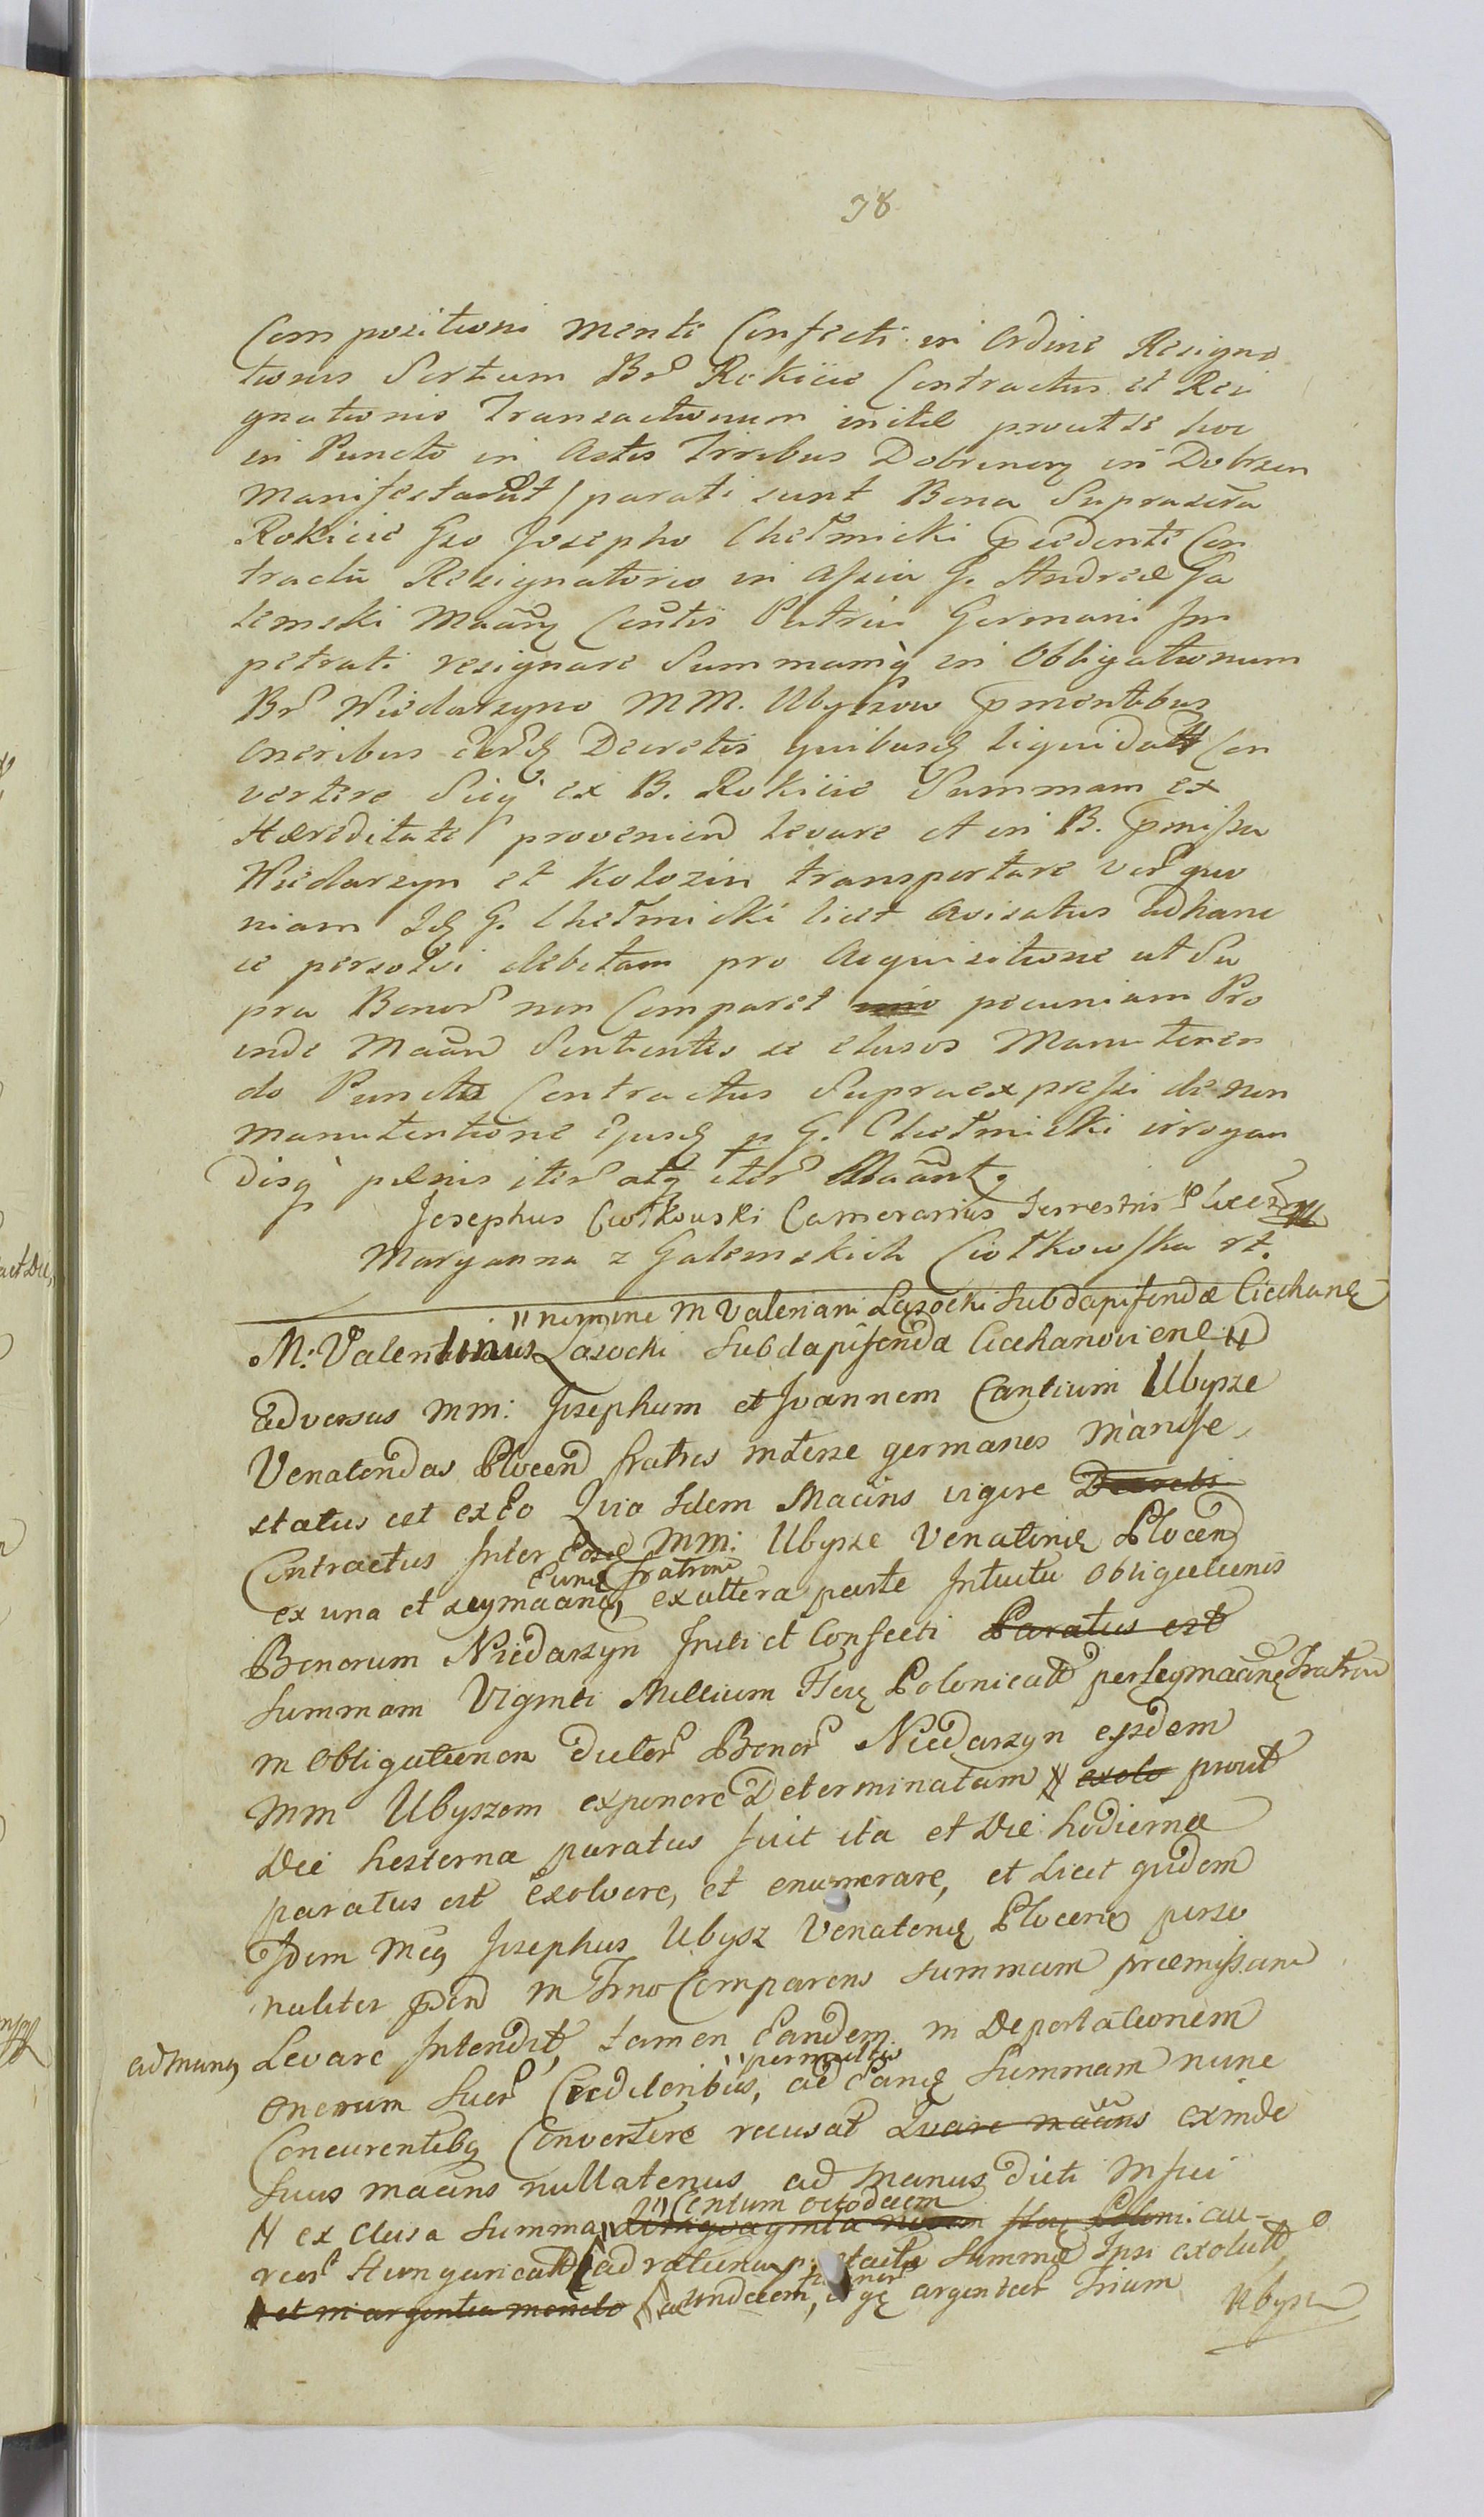 38
Compositioni menti Confecti in Ordine Resigna
tionis Sortium Br Rokicie Contractus et Resi
gnationis Transactionum initæ prout se hoc
in Puncto in Actis Trribus Dobrinen in Dobrzen
Manifestarut parati sunt Bona Suprascra
Rokicie Gso Josepho Chełmicki Cœdenti Con
tractu Resignatorio in Assia G. Andreæ Ga
lemski Maan Contis Patrui Germani Im
petrati resignare Summamq in Obligationum
Br Niedarzyno MM. Ubyszow pmentibus
Oneribus Decretis quibusq liquidatt Con
vertere Sicq ex B. Rokicie Summam ex
Hæreditate provenien levare et in B. pmissa
Niedarzyn et Kolozin transportare Ver quo
niam Id G. Chełmicki licet Avisatus adhanc
ce persolvi debitam pro Acquisitione ut Su
pra Bonor non Comparet pecuniam Pro
inde Maan Sentientes se elusos Manuteren
do Puncta Contractus Supraexpressi de non
manutentione Ejusd p G. Chełmicki irrogan
disq pænis iter atq iter Maant.
Josephus Ciołkowski Camerarius Terrestris Plocen
Maryanna z Galemskich Ciołkowska rt.
" nomine M Valeriani Lasocki Subdapiferidæ Ciechan
M: Valentinus Lasocki Subdapiferida Ciechanovien "
adversus MM: Josephum et Joannem Cantium Ubysze
Venatoridas Plocen fratres interse germanes manife
status est exEo Qvia Idem Maans vigore Decreti
Contractus Inter Eosd MM: Ubysze Venatorid Plocen
Eund Fratrem
ex una et seymaand, exaltera parte Intuitu Obligationis
Bonorum Niedarzyn Initi et Confecti Paratus est
Summam Viginti Millium Flor Polonicatt perseymaand Fratrem
in Obligationem dictor Bonor Niedarzyn ejsdem
MM Ubyszom exponere Determinatam exolo prout
Die hesterna paratus fuit ita et Die hodierna
paratus est exolvere, et enumerare, et Licet quidem
Idem Mcus Josephus Ubysz Venatorid Plocen perso
naliter pden in Trno Comparens summam præmissam
ad manq Levare Intendit, tamen Eandem in Deportationem
" permultis
onerum suor Creditoribus, ad Eand Summam nunc
Concurentibq Convertere recusat Qvare maans exinde
Suus maans nullatenus ad manus dicti Msui
" Centum octodecim
ex clusa Summa Polon: au-
reor Hungaricatt ad rationem Summæ Ipsi exolutt
et in argentea moneta undecim, argenteor Trium
Ubysz